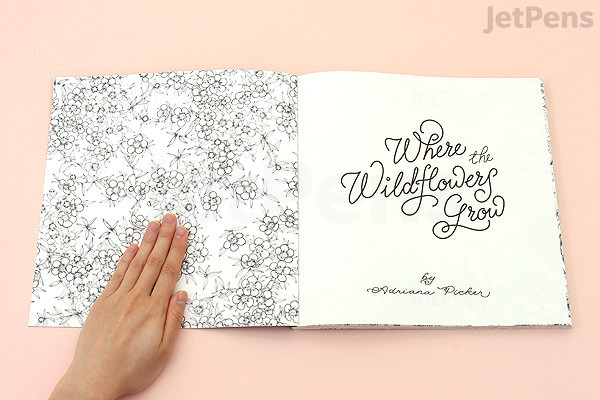 JetPens
JetPens
Where the
Wildflowers
Grow
by
Adriana Picker